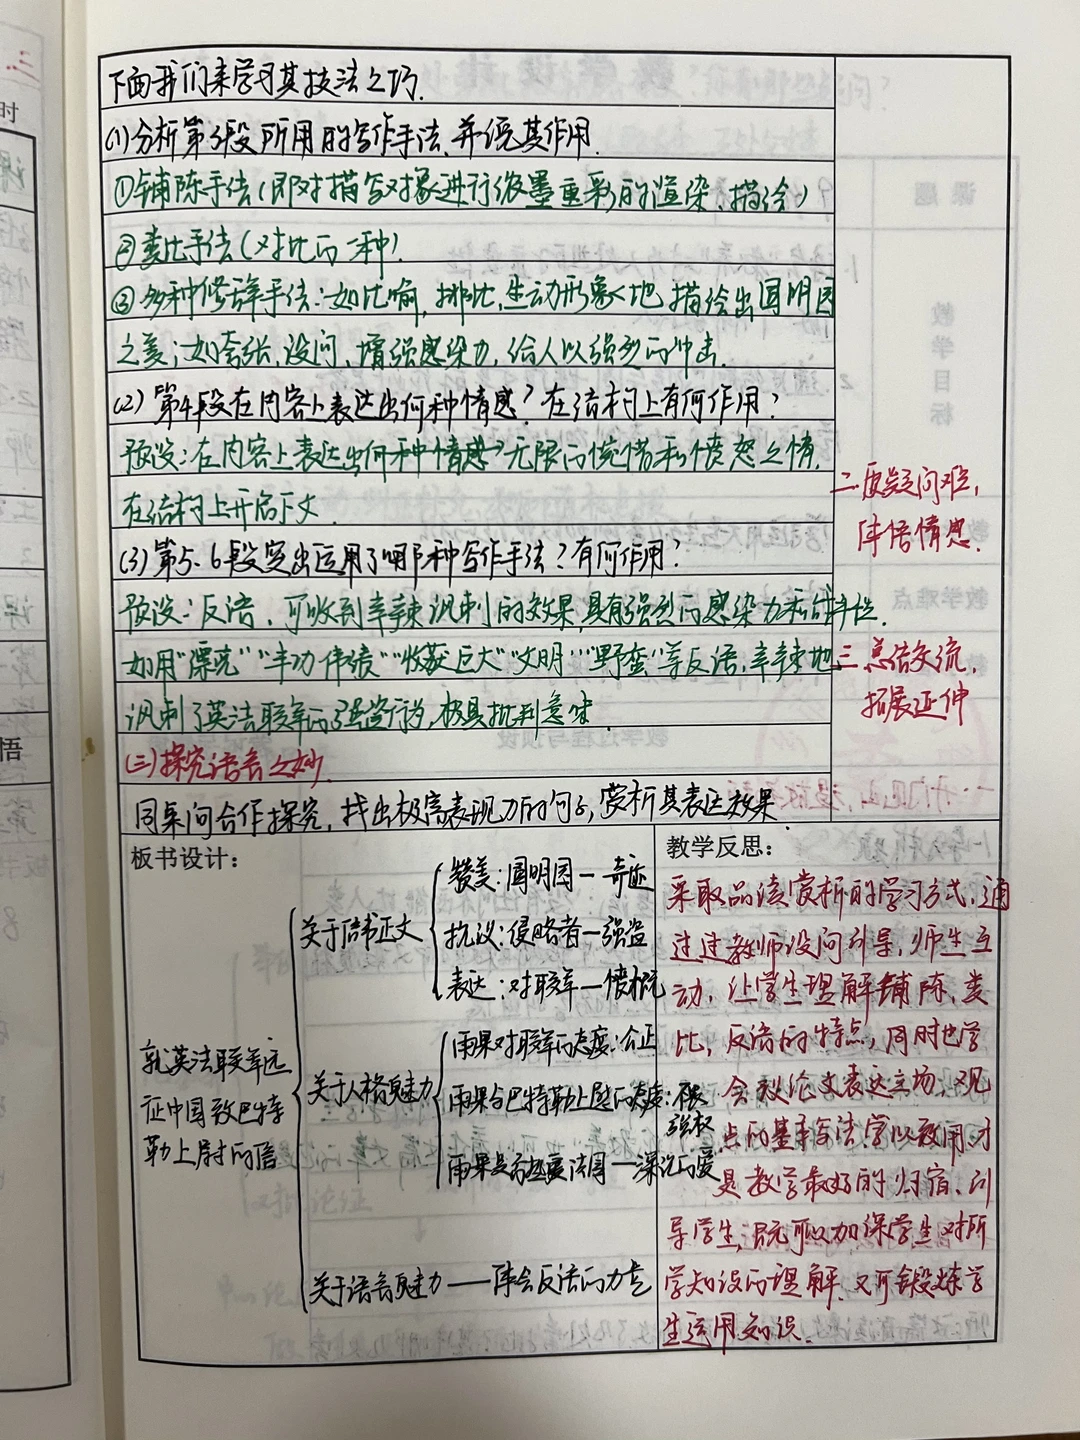 下面我们来学习其技法之巧.
(1)分析第3段所用的写作手法,并说其作用.
①铺陈手法(即对描写对象进行浓墨重彩的渲染、描绘)
②类比手法(对比的一种)
③多种修辞手法:如比喻,排比,生动形象地描绘出圆明园
之美;如夸张,设问,增强感染力,给人以强烈的冲击.
(2)第4段在内容上表达出何种情感?在结构上有何作用?
预设:在内容上表达出何种情感?无限的惋惜和愤怒之情.
在结构上开启下文.
(3)第5、6段突出运用了哪种写作手法?有何作用?
预设:反语,可收到辛辣讽刺的效果,具有强烈的感染力和战斗性.
如用"漂亮""丰功伟绩""收获巨大""文明""野蛮"等反语,辛辣地
讽刺了英法联军的强盗行为,极具批判意味.
(三)探究语言之妙.
同桌间合作探究,找出极富表现力的句子,赏析其表达效果.
二、质疑问难,
体悟情感.
三、总结交流,
拓展延伸
板书设计:
就英法联军远
征中国致巴特
勒上尉的信
关于信书正文
赞美:圆明园一奇迹
抗议:侵略者一强盗
表达:对联军一愤慨
关于人格魅力
雨果对联军的态度:公正
雨果与巴特勒上尉的态度:不畏
强权
雨果是否热爱法国一深沉的爱
关于语言魅力——体会反语的力量
教学反思:
采取品读赏析的学习方式,通
过过教师设问引导,师生互
动,让学生理解铺陈、类
比,反语的特点,同时也学
会议论文表达立场、观
点的基本写法.学以致用才
是教学最好的归宿、引
导学生,既可以加深学生对所
学知识的理解、又可锻炼学
生运用知识.
课题
教学目标
教学难点
教学过程与预设
时
悟